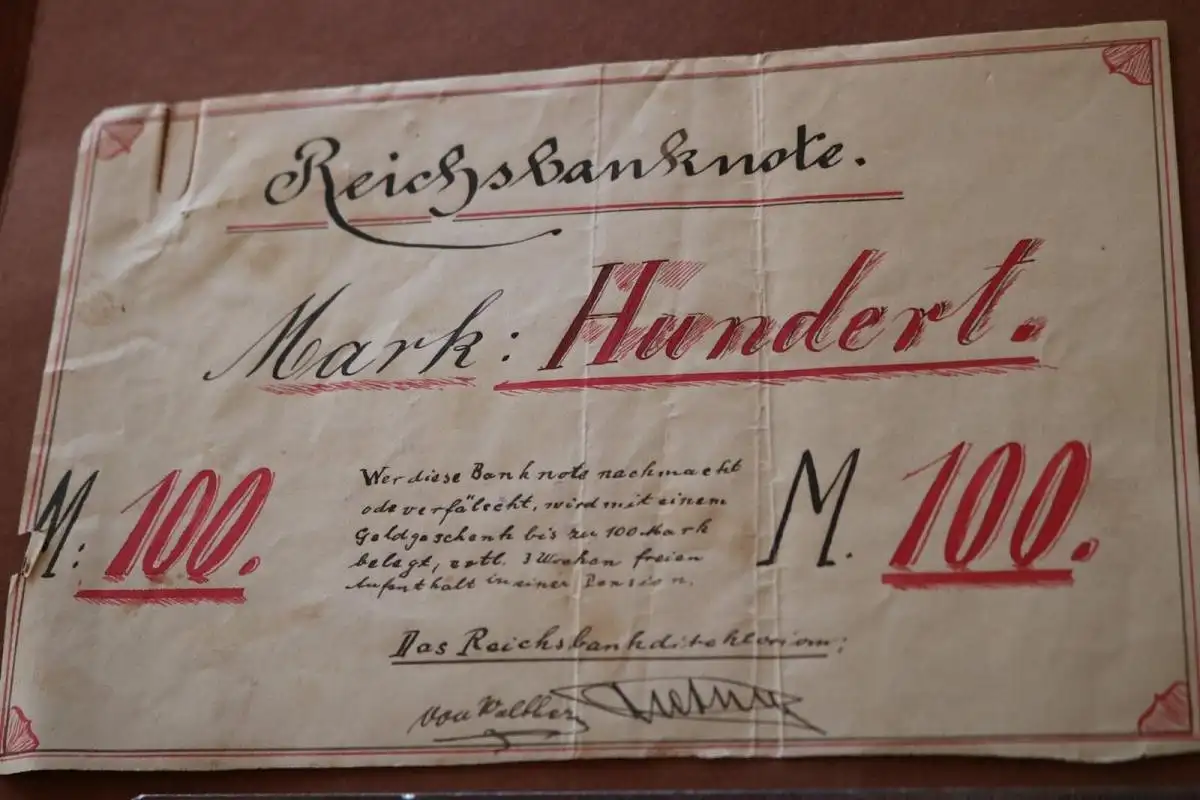 Reichsbanknote.
Mark: Hundert.
M: 100.
Wer diese Banknote nachmacht
ode verfälscht, wird mit einem
Geldgeschenk bis zu 100 Mark
belegt, evtl. 3 Wochen freien
Aufenthalt in einer Pension.
M. 100.
Das Reichsbankdirektorium:
von